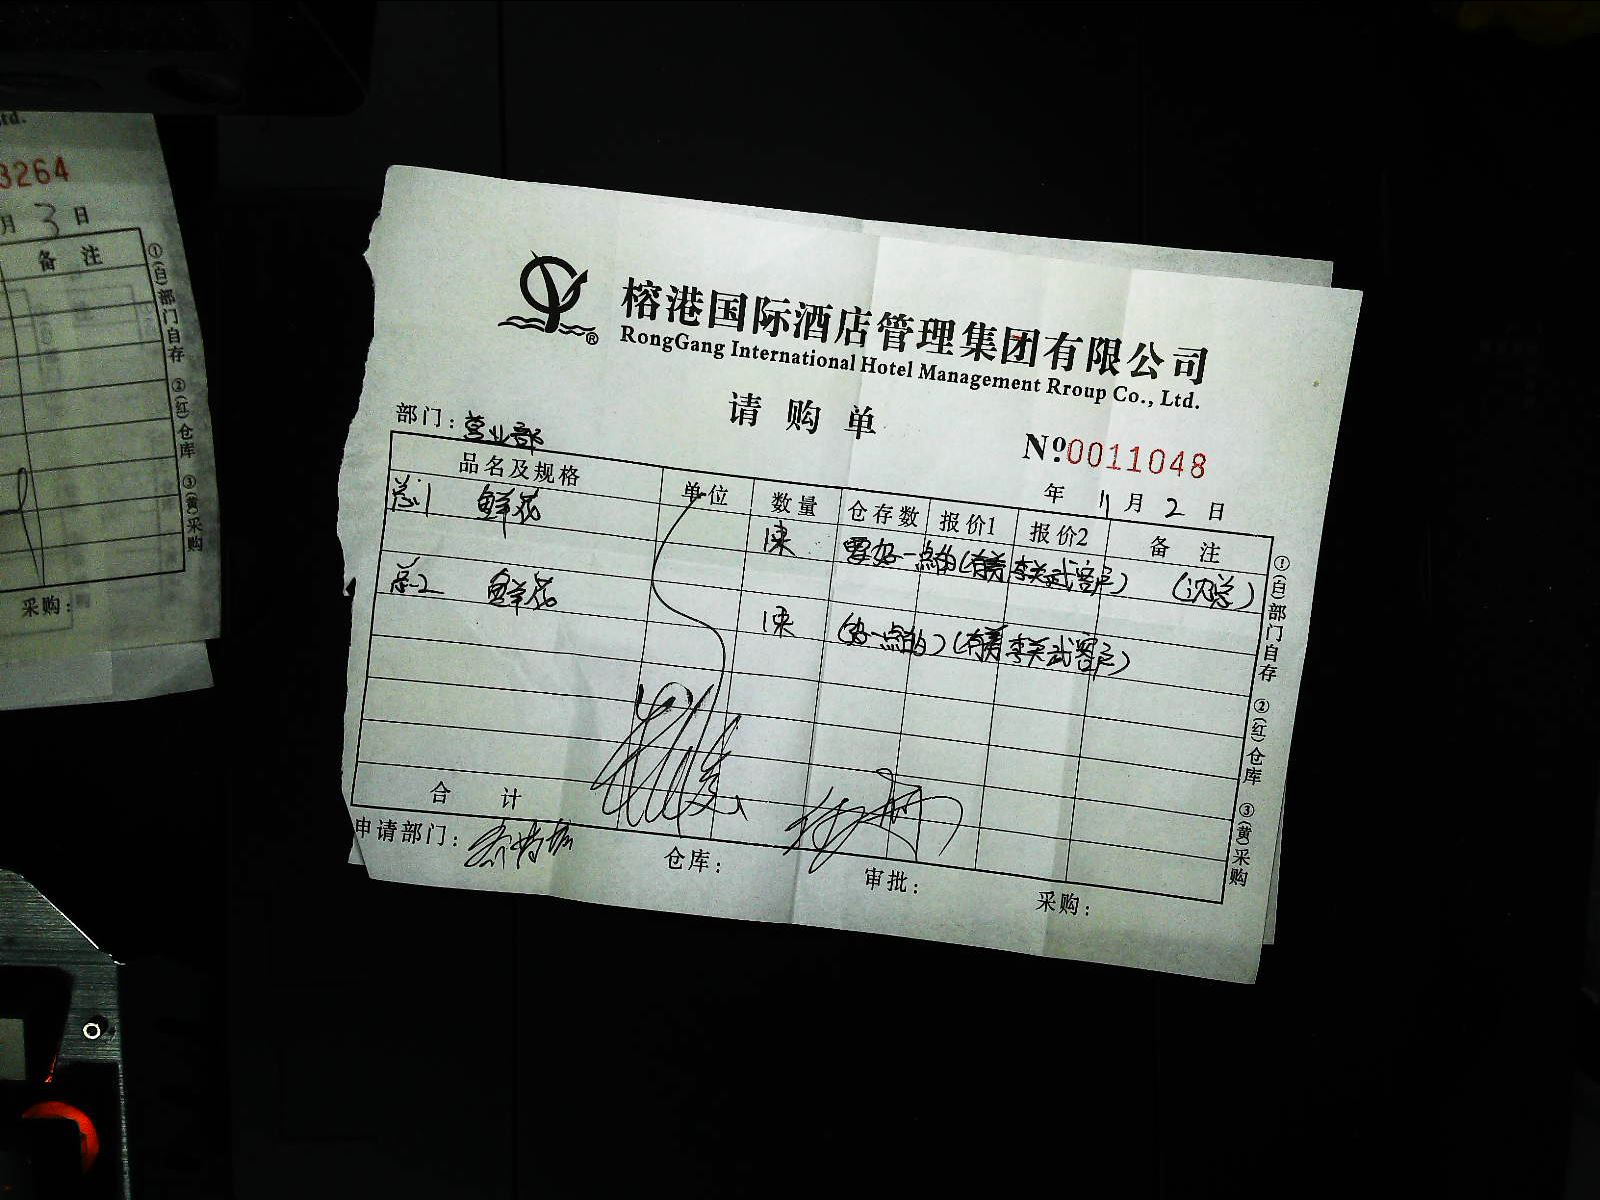 td.
3264
月 3 日
备 注
①(白)部门自存 ②(红)仓库 ③(黄)采购
采购:
榕港国际酒店管理集团有限公司
RongGang International Hotel Management Rroup Co., Ltd.
请购单
部门:营业部
No0011048
年 11 月 2 日
品名及规格 单位 数量 仓存数 报价1 报价2 备 注
总1 鲜花 1束 要好一点的(有 客户) (沈总)
总2 鲜花 1束 (好一点的)(有 客户)
合 计
申请部门: 仓库: 审批: 采购:
①(白)部门自存 ②(红)仓库 ③(黄)采购